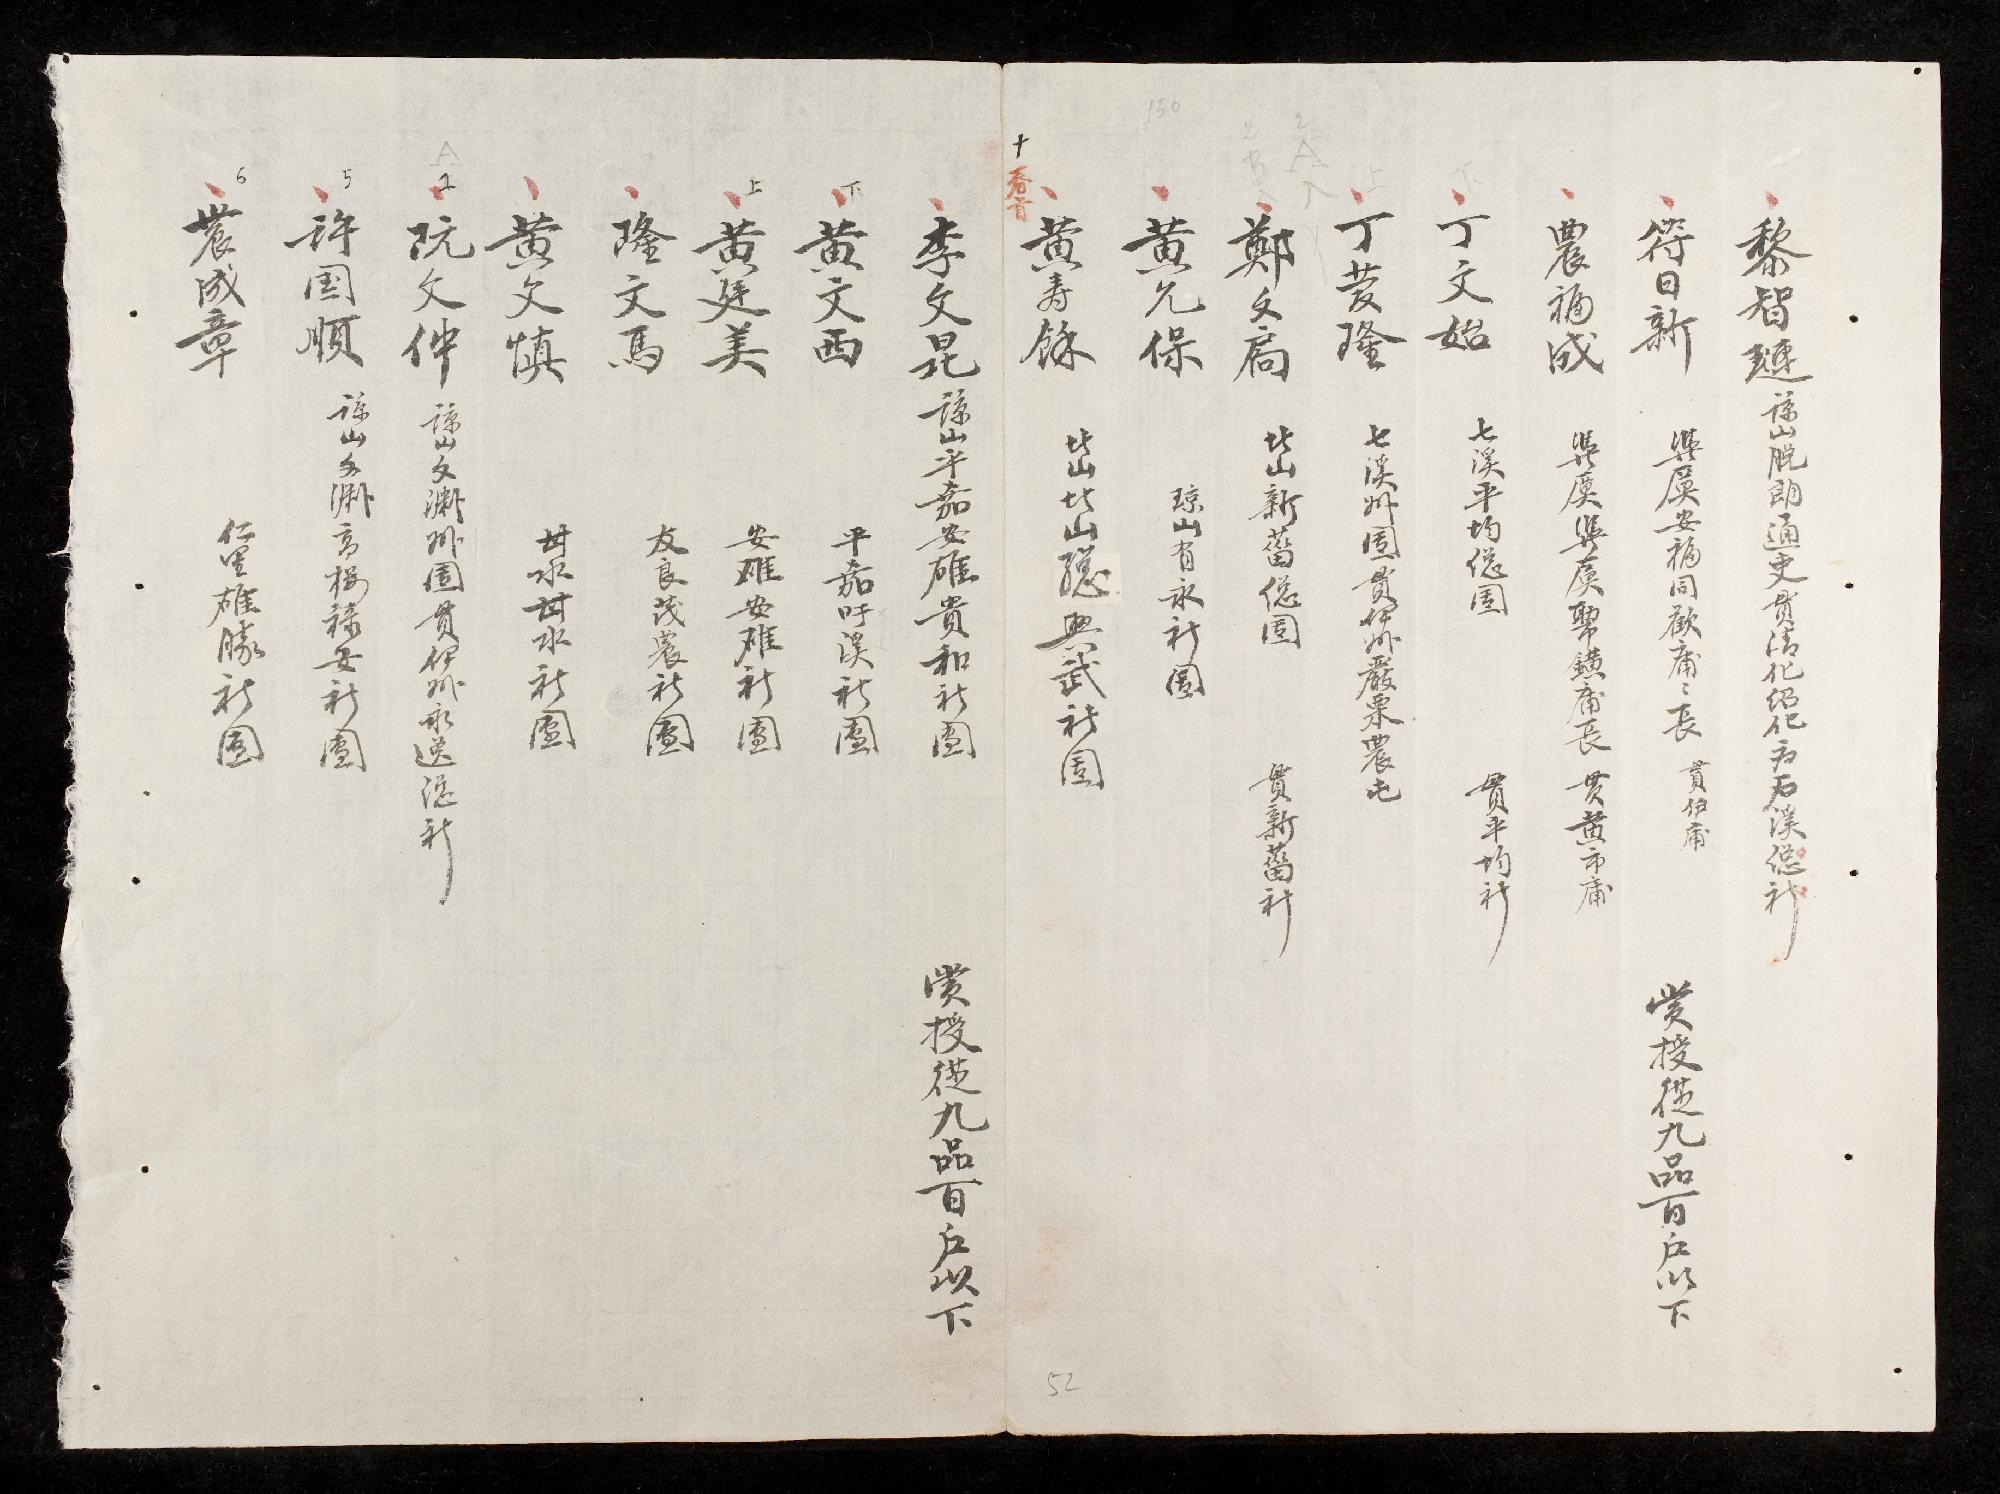 黎智璉 諒山脱朗通吏貫清化紹化 石溪總社
符日新 琹廙安福同歡庯〻長 貫伊庯
賞授從九品百戶以下
農福成 琹廙琹廙 庯長 貫黄市庯
丁文始 七溪平均總團 貫平均社
丁 隆 七溪州團貫伊州嚴栗農屯
鄭文扃 北山新舊總團 貫新舊社
黄允保 琼山有永社團
黄寿餘 北山北山總興武社團
十
李文昆 諒山平嘉安雄貴和社團
賞授從九品百戶以下
下
黄文西 平嘉吁溪社團
上
黄廷美 安雄安雄社團
隆文馬 友良茂農社團
黄文慎 甘水甘水社團
A
阮文仲 諒山文渊州團貫伊州永逆總社
5
許国順 諒山文渊高樓祿安社團
6
農成章 仁里雄勝社團
150
52